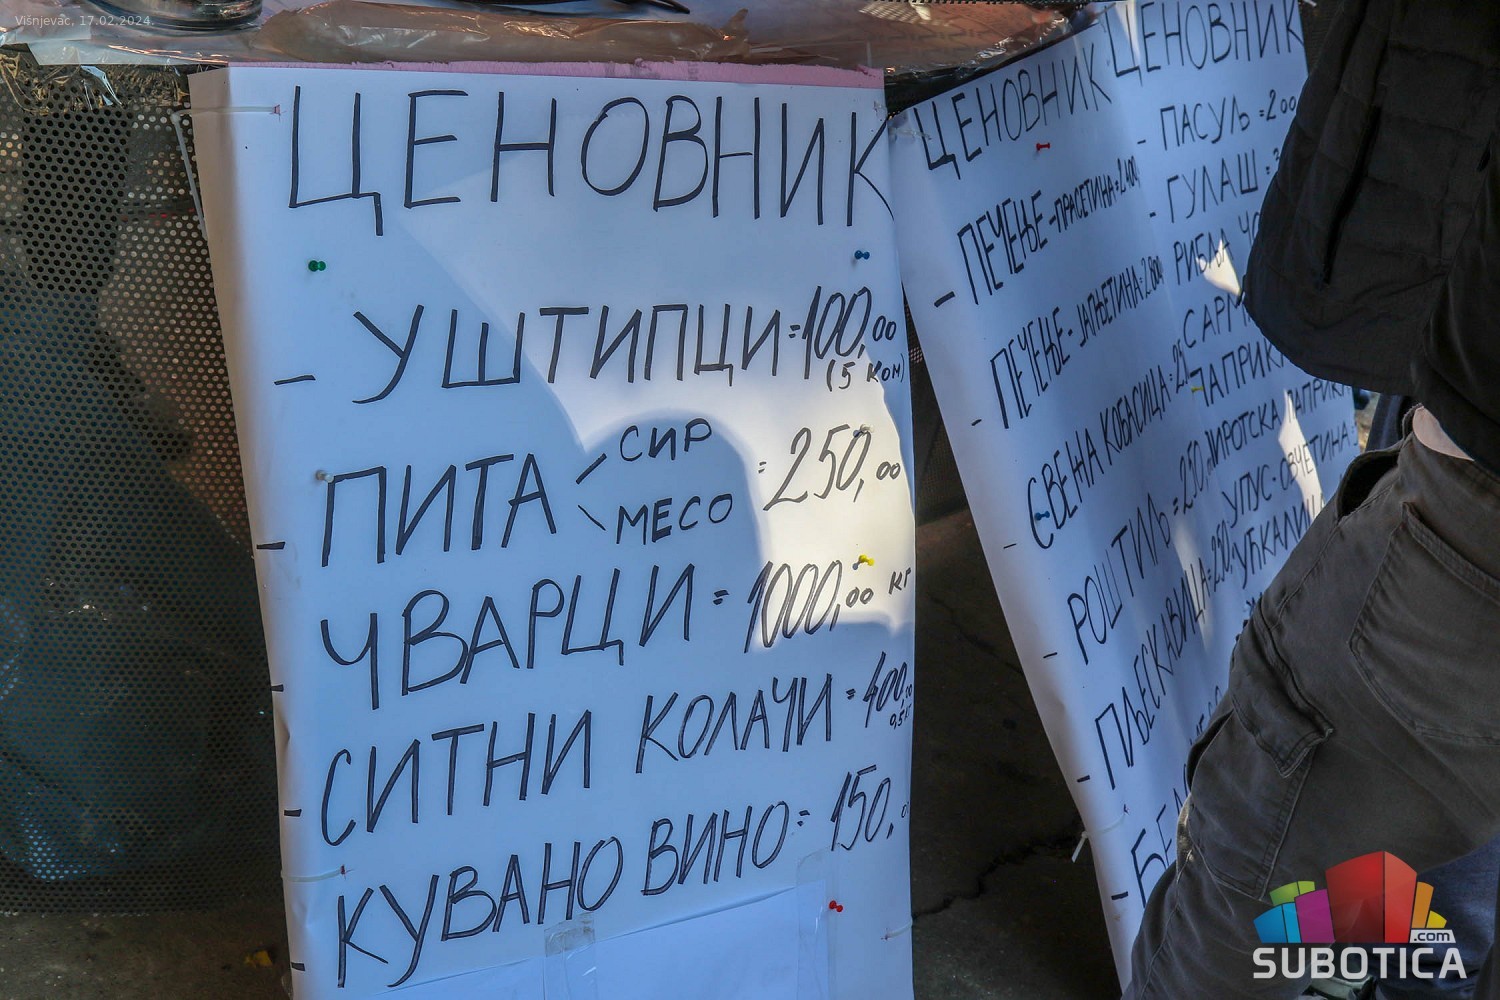 Višnjevac, 17.02.2024.
ЦЕНОВНИК
- УШТИПЦИ = 100,00
(5 КОМ)
- ПИТА СИР
МЕСО = 250,00
- ЧВАРЦИ = 1000,00 КГ
- СИТНИ КОЛАЧИ = 400,00
0,5 КГ
- КУВАНО ВИНО = 150,
ЦЕНОВНИК
- ПЕЧЕЊЕ - ПРАСЕТИНА =
- ПЕЧЕЊЕ - ЈАГЊЕТИНА =
- СВЕЖА КОБАСИЦА =
- РОШТИЉ = 250,
- ПЉЕСКАВИЦА = 250,
ЦЕНОВНИК
- ПАСУЉ = 200
- ГУЛАШ =
РИБЉА
ПИРОТСКА
УПУС - ОВЧЕТИНА
SUBOTICA
.com